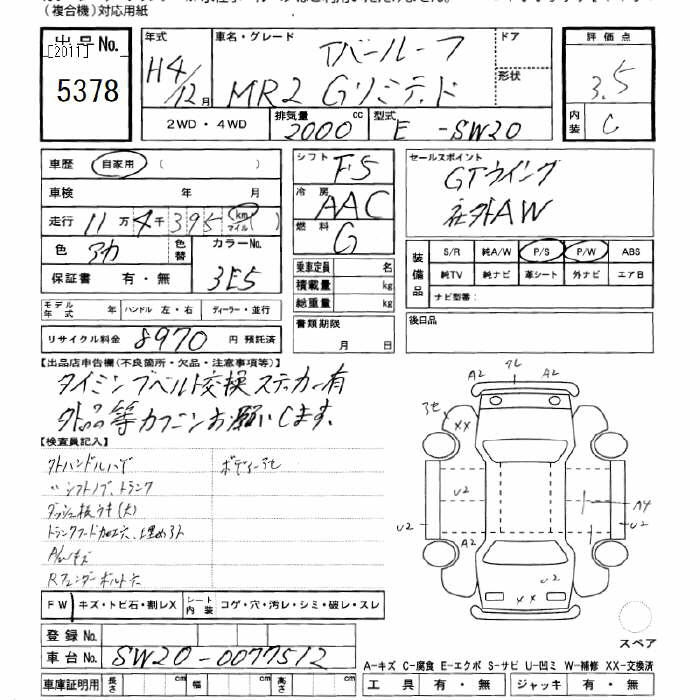 （複合機）対応用紙
出品No.
[2011]
5378
年式
H4/12月
車名・グレード
Tバールーフ
MR2 Gリミテッド
ドア
形状
2WD・4WD
排気量
2000cc
型式
E-SW20
評価点
3.5
内装
C
車歴 自家用 （ ）
車検 年 月
走行 11万4千395 km マイル
色 アカ
色替
カラーNo.
3E5
保証書 有・無
シフト F5
冷房 AAC
燃料 G
乗車定員 名
積載量 kg
総重量 kg
セールスポイント
GTウイング
社外AW
装備品
S/R 純A/W P/S P/W ABS
純TV 純ナビ 革シート 外ナビ エアB
ナビ型番：
モデル年式 年 ハンドル 左・右 ディーラー・並行
リサイクル料金 8970 円 預託済
書類期限
月 日
後日品
【出品店申告欄（不良箇所・欠品・注意事項等）】
タイミングベルト交換 ステッカー有
外品等カクニンお願いします。
【検査員記入】
〃シフトノブ、トランク
ダッシュ板ウキ(大)
トランクフード加工穴、埋め
A/Wキズ
Rフェンダーボルト穴
A2 A2
XX
U2
U2
A4
U2
A2
A2
U2
XX
FW キズ・トビ石・割レX シート内装 コゲ・穴・汚レ・シミ・破レ・スレ
スペア
登録No.
車台No. SW20-0077512
A−キズ C−腐食 E−エクボ S−サビ U−凹ミ W−補修 XX−交換済
車庫証明用 長さ cm 幅 cm 高さ cm
工具 有・無 ジャッキ 有・無